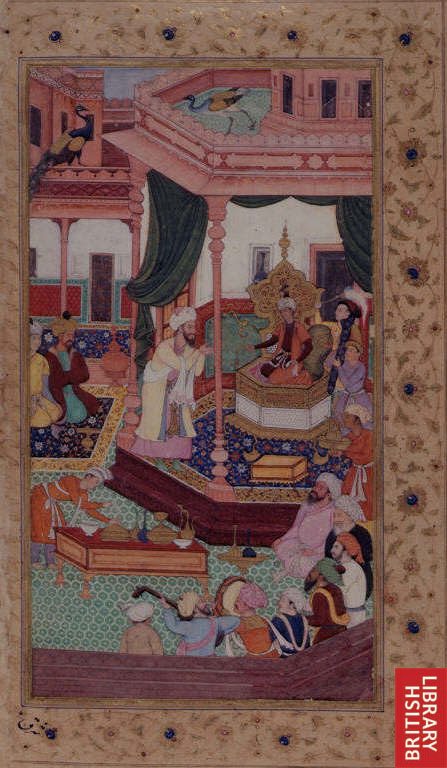 BRITISH
LIBRARY